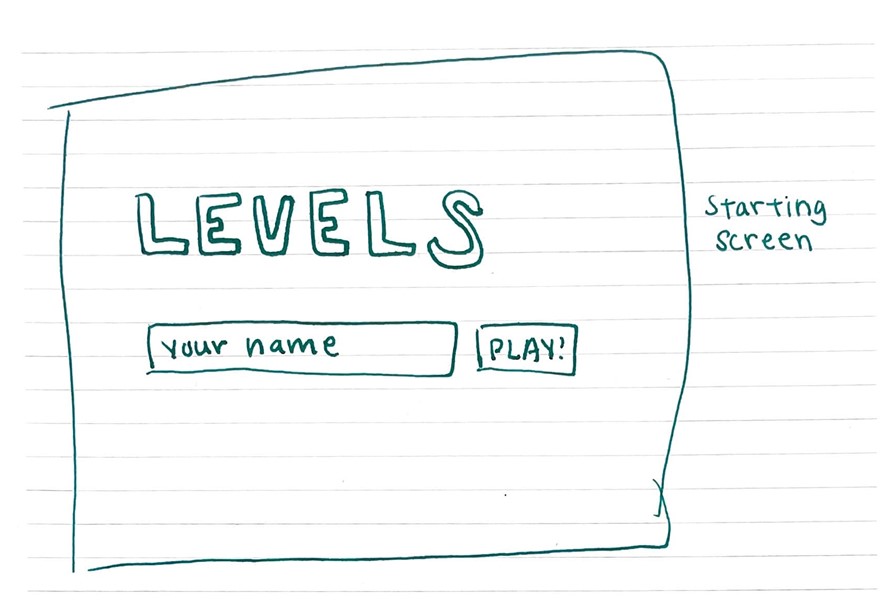 LEVELS
your name
PLAY!
Starting
screen